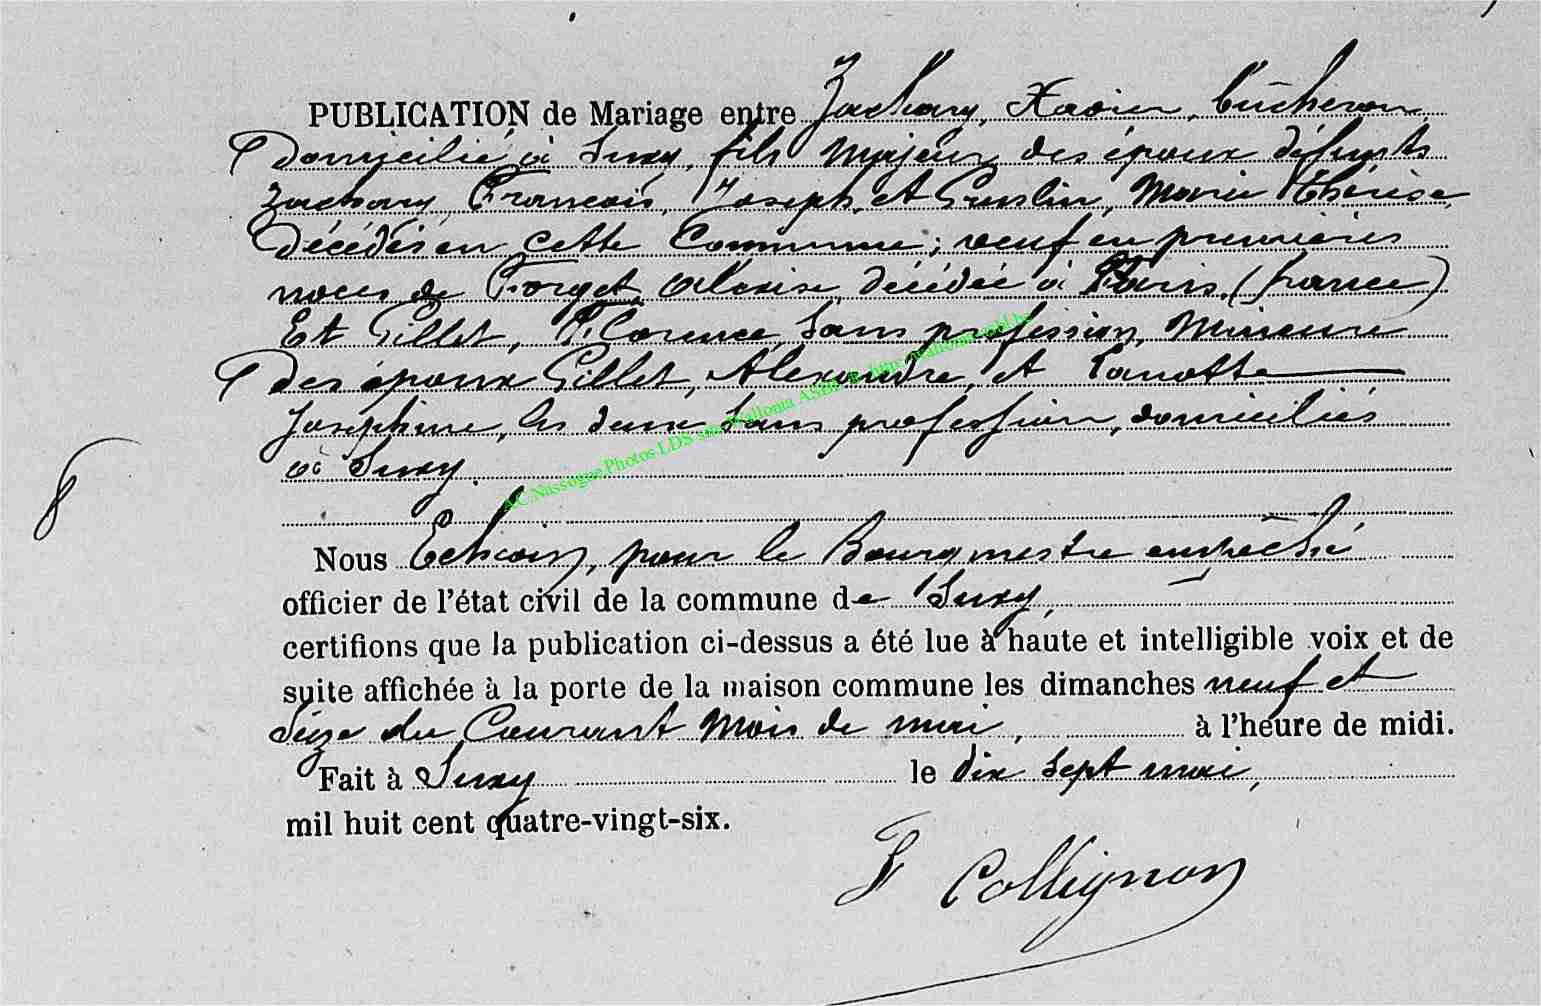 PUBLICATION de Mariage entre Zachary, Xavier, bûcheron,
Domicilié à Suxy, fils Majeur des époux défunts
Zachary, François, Joseph, et Guislin, Marie Thérèse
Décédés en cette Commune; veuf en premières
noces de Forget, Aloxise, décédée à Paris, (france)
Et Gillet, Florence, Sans profession, Mineure
Des époux Gillet, Alexandre, et Lanotte
Joséphine, les deux Sans profession, domiciliés
à Suxy.
A.C.Nassogne Photos LDS
8
Nous pour le Bourgmestre empêché
officier de l'état civil de la commune de Suxy,
certifions que la publication ci-dessus a été lue à haute et intelligible voix et de
suite affichée à la porte de la maison commune les dimanches neuf et
Seize du Courant Mois de mai, à l'heure de midi.
Fait à Suxy le dix Sept mai,
mil huit cent quatre-vingt-six.
F Collignon